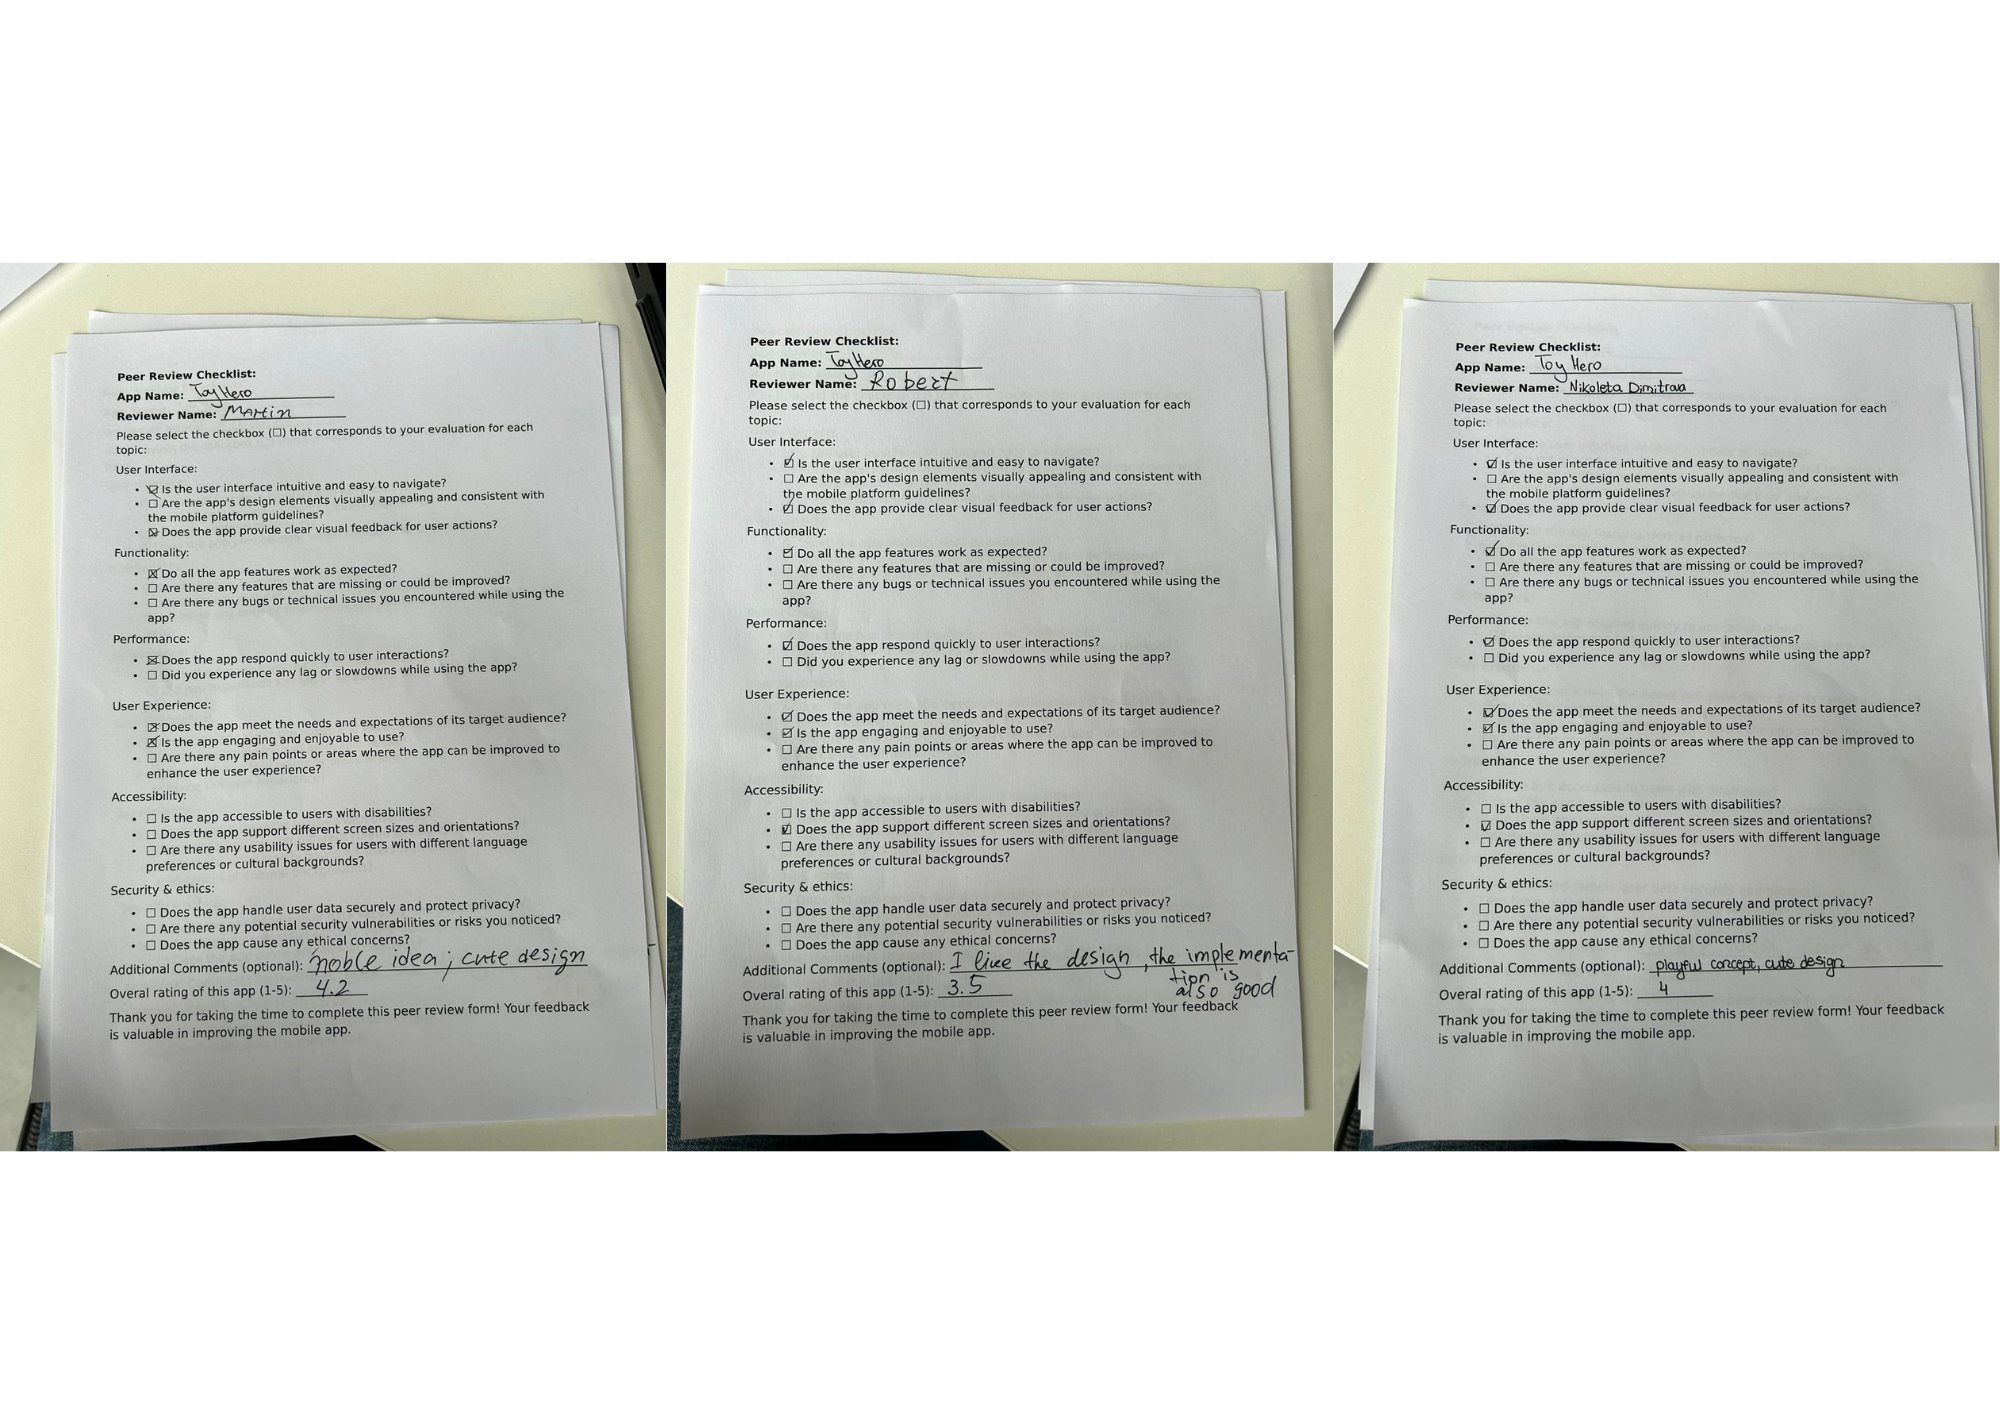 Peer Review Checklist:
App Name: ToyHero
Reviewer Name: Martin
Please select the checkbox (☐) that corresponds to your evaluation for each
topic:
User Interface:
• ☒ Is the user interface intuitive and easy to navigate?
• ☐ Are the app's design elements visually appealing and consistent with
the mobile platform guidelines?
• ☒ Does the app provide clear visual feedback for user actions?
Functionality:
• ☒ Do all the app features work as expected?
• ☐ Are there any features that are missing or could be improved?
• ☐ Are there any bugs or technical issues you encountered while using the
app?
Performance:
• ☒ Does the app respond quickly to user interactions?
• ☐ Did you experience any lag or slowdowns while using the app?
User Experience:
• ☒ Does the app meet the needs and expectations of its target audience?
• ☒ Is the app engaging and enjoyable to use?
• ☐ Are there any pain points or areas where the app can be improved to
enhance the user experience?
Accessibility:
• ☐ Is the app accessible to users with disabilities?
• ☐ Does the app support different screen sizes and orientations?
• ☐ Are there any usability issues for users with different language
preferences or cultural backgrounds?
Security & ethics:
• ☐ Does the app handle user data securely and protect privacy?
• ☐ Are there any potential security vulnerabilities or risks you noticed?
• ☐ Does the app cause any ethical concerns?
Additional Comments (optional): noble idea; cute design
Overal rating of this app (1-5): 4.2
Thank you for taking the time to complete this peer review form! Your feedback
is valuable in improving the mobile app.
Peer Review Checklist:
App Name: ToyHero
Reviewer Name: Robert
Please select the checkbox (☐) that corresponds to your evaluation for each
topic:
User Interface:
• ☑ Is the user interface intuitive and easy to navigate?
• ☐ Are the app's design elements visually appealing and consistent with
the mobile platform guidelines?
• ☑ Does the app provide clear visual feedback for user actions?
Functionality:
• ☑ Do all the app features work as expected?
• ☐ Are there any features that are missing or could be improved?
• ☐ Are there any bugs or technical issues you encountered while using the
app?
Performance:
• ☑ Does the app respond quickly to user interactions?
• ☐ Did you experience any lag or slowdowns while using the app?
User Experience:
• ☑ Does the app meet the needs and expectations of its target audience?
• ☑ Is the app engaging and enjoyable to use?
• ☐ Are there any pain points or areas where the app can be improved to
enhance the user experience?
Accessibility:
• ☐ Is the app accessible to users with disabilities?
• ☑ Does the app support different screen sizes and orientations?
• ☐ Are there any usability issues for users with different language
preferences or cultural backgrounds?
Security & ethics:
• ☐ Does the app handle user data securely and protect privacy?
• ☐ Are there any potential security vulnerabilities or risks you noticed?
• ☐ Does the app cause any ethical concerns?
Additional Comments (optional): I like the design, the implementa-
tion is
also good
Overal rating of this app (1-5): 3.5
Thank you for taking the time to complete this peer review form! Your feedback
is valuable in improving the mobile app.
Peer Review Checklist:
App Name: Toy Hero
Reviewer Name: Nikoleta Dimitrova
Please select the checkbox (☐) that corresponds to your evaluation for each
topic:
User Interface:
• ☑ Is the user interface intuitive and easy to navigate?
• ☐ Are the app's design elements visually appealing and consistent with
the mobile platform guidelines?
• ☑ Does the app provide clear visual feedback for user actions?
Functionality:
• ☑ Do all the app features work as expected?
• ☐ Are there any features that are missing or could be improved?
• ☐ Are there any bugs or technical issues you encountered while using the
app?
Performance:
• ☑ Does the app respond quickly to user interactions?
• ☐ Did you experience any lag or slowdowns while using the app?
User Experience:
• ☑ Does the app meet the needs and expectations of its target audience?
• ☑ Is the app engaging and enjoyable to use?
• ☐ Are there any pain points or areas where the app can be improved to
enhance the user experience?
Accessibility:
• ☐ Is the app accessible to users with disabilities?
• ☑ Does the app support different screen sizes and orientations?
• ☐ Are there any usability issues for users with different language
preferences or cultural backgrounds?
Security & ethics:
• ☐ Does the app handle user data securely and protect privacy?
• ☐ Are there any potential security vulnerabilities or risks you noticed?
• ☐ Does the app cause any ethical concerns?
Additional Comments (optional): playful concept, cute design
Overal rating of this app (1-5): 4
Thank you for taking the time to complete this peer review form! Your feedback
is valuable in improving the mobile app.